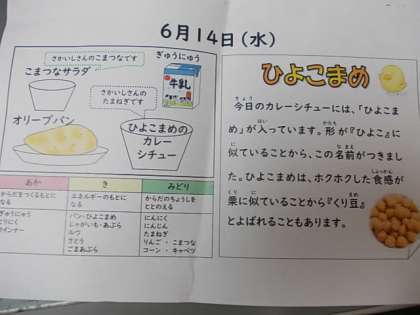 6月14日(水)
さかいしさんのこまつなです
こまつなサラダ
ぎゅうにゅう
牛乳
さかいしさんの
たまねぎです
オリーブパン
ひよこまめの
カレー
シチュー
あか
き
みどり
からだをつくるもとに
なる
エネルギーのもとに
なる
からだのちょうしを
ととのえる
ぎゅうにゅう
とりにく
ウインナー
パン・ひよこまめ
じゃがいも・あぶら
ルウ
さとう
ごまあぶら
にんにく
にんじん
たまねぎ
りんご・こまつな
コーン・キャベツ
ひよこまめ
きょう
今日のカレーシチューには、「ひよこま
はい かたち
め」が入っています。形が『ひよこ』に
に なまえ
似ていることから、この名前がつきまし
しょっかん
た。ひよこまめは、ホクホクした食感が
くり に まめ
栗に似ていることから『くり豆』
とよばれることもあります。